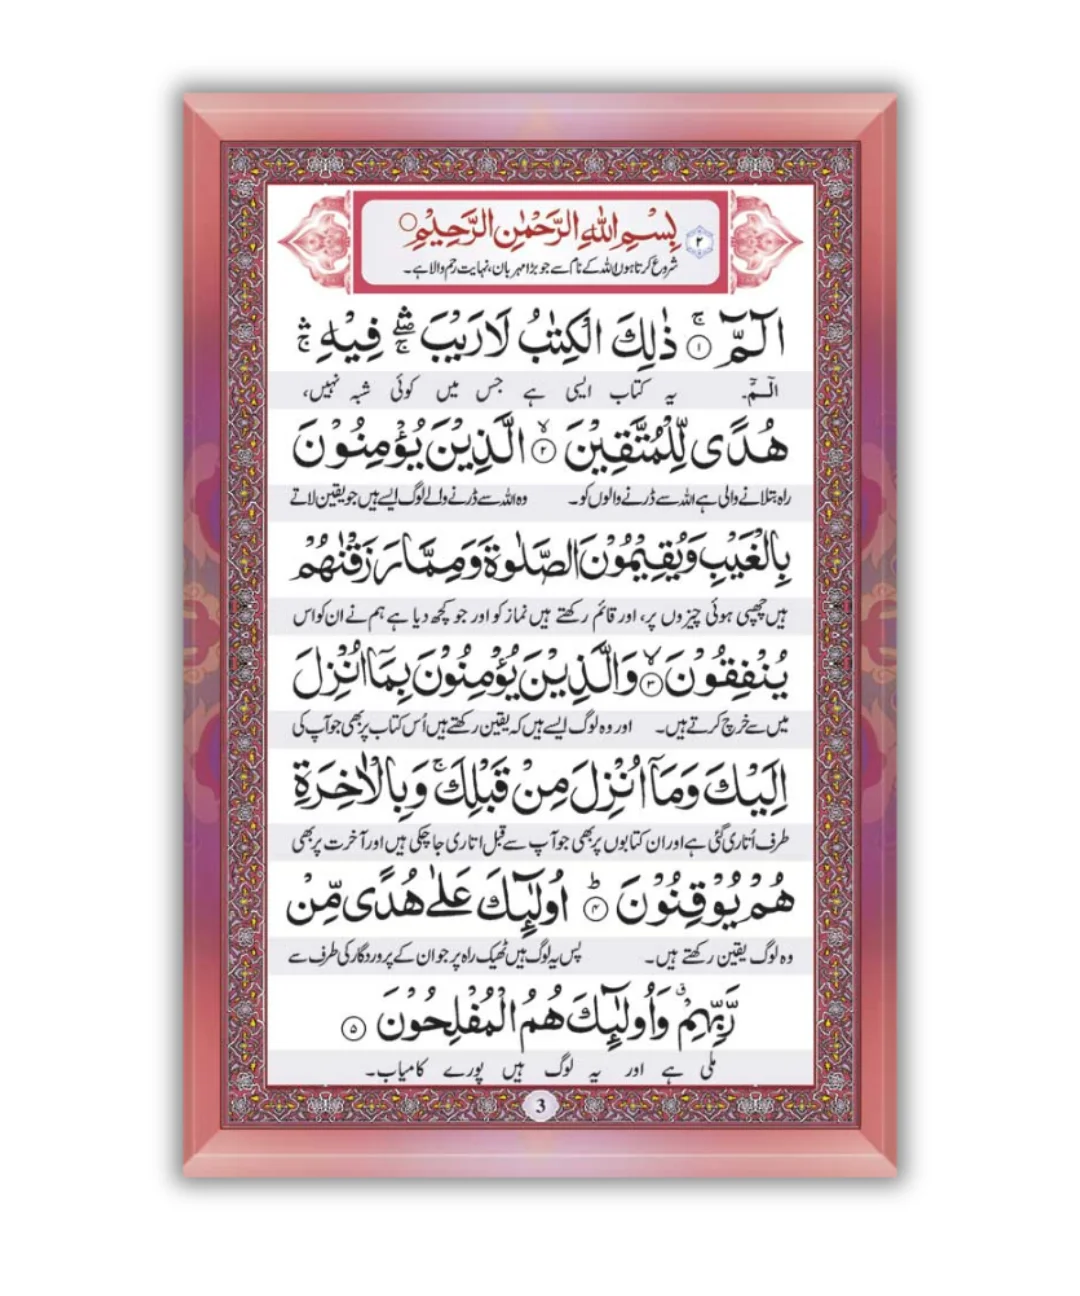 بِسْمِ اللهِ الرَّحْمٰنِ الرَّحِيْمِ ○
٢
شروع کرتا ہوں اللہ کے نام سے جو بڑا مہربان، نہایت رحم والا ہے۔
الٓـمّٓ ۚ ﴿١﴾ ذٰلِكَ الْكِتٰبُ لَا رَيْبَ ۛۖۚ فِيْهِ ۛۚ
الٓـمّٓ۔ یہ کتاب ایسی ہے جس میں کوئی شبہ نہیں،
هُدًى لِّلْمُتَّقِيْنَ ۙ ﴿٢﴾ الَّذِيْنَ يُؤْمِنُوْنَ
راہ بتلانے والی ہے اللہ سے ڈرنے والوں کو۔ وہ اللہ سے ڈرنے والے لوگ ایسے ہیں جو یقین لاتے
بِالْغَيْبِ وَيُقِيْمُوْنَ الصَّلٰوةَ وَمِمَّا رَزَقْنٰهُمْ
ہیں چھپی ہوئی چیزوں پر، اور قائم رکھتے ہیں نماز کو اور جو کچھ دیا ہے ہم نے ان کو اس
يُنْفِقُوْنَ ۙ ﴿٣﴾ وَالَّذِيْنَ يُؤْمِنُوْنَ بِمَآ اُنْزِلَ
میں سے خرچ کرتے ہیں۔ اور وہ لوگ ایسے ہیں کہ یقین رکھتے ہیں اُس کتاب پر بھی جو آپ کی
اِلَيْكَ وَمَآ اُنْزِلَ مِنْ قَبْلِكَ ۚ وَبِالْاٰخِرَةِ
طرف اُتاری گئی ہے اور ان کتابوں پر بھی جو آپ سے قبل اتاری جا چکی ہیں اور آخرت پر بھی
هُمْ يُوْقِنُوْنَ ۭ ﴿٤﴾ اُولٰٓئِكَ عَلٰى هُدًى مِّنْ
وہ لوگ یقین رکھتے ہیں۔ پس یہ لوگ ہیں ٹھیک راہ پر جو ان کے پروردگار کی طرف سے
رَّبِّهِمْ ۤ وَاُولٰٓئِكَ هُمُ الْمُفْلِحُوْنَ ﴿٥﴾
ملی ہے اور یہ لوگ ہیں پورے کامیاب۔
3